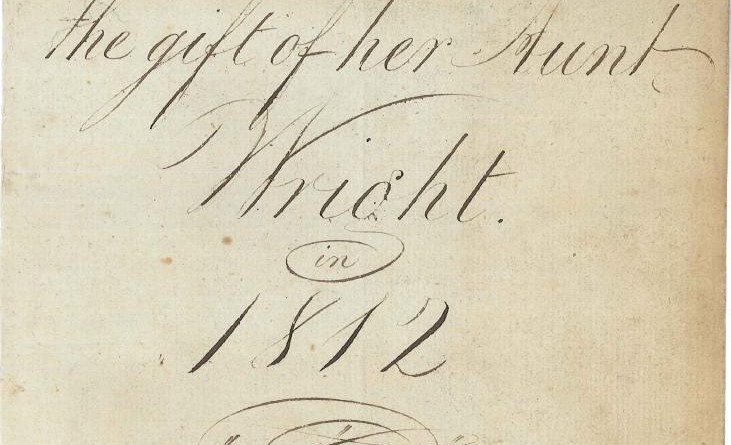 the gift of her Aunt
Wright.
in
1812